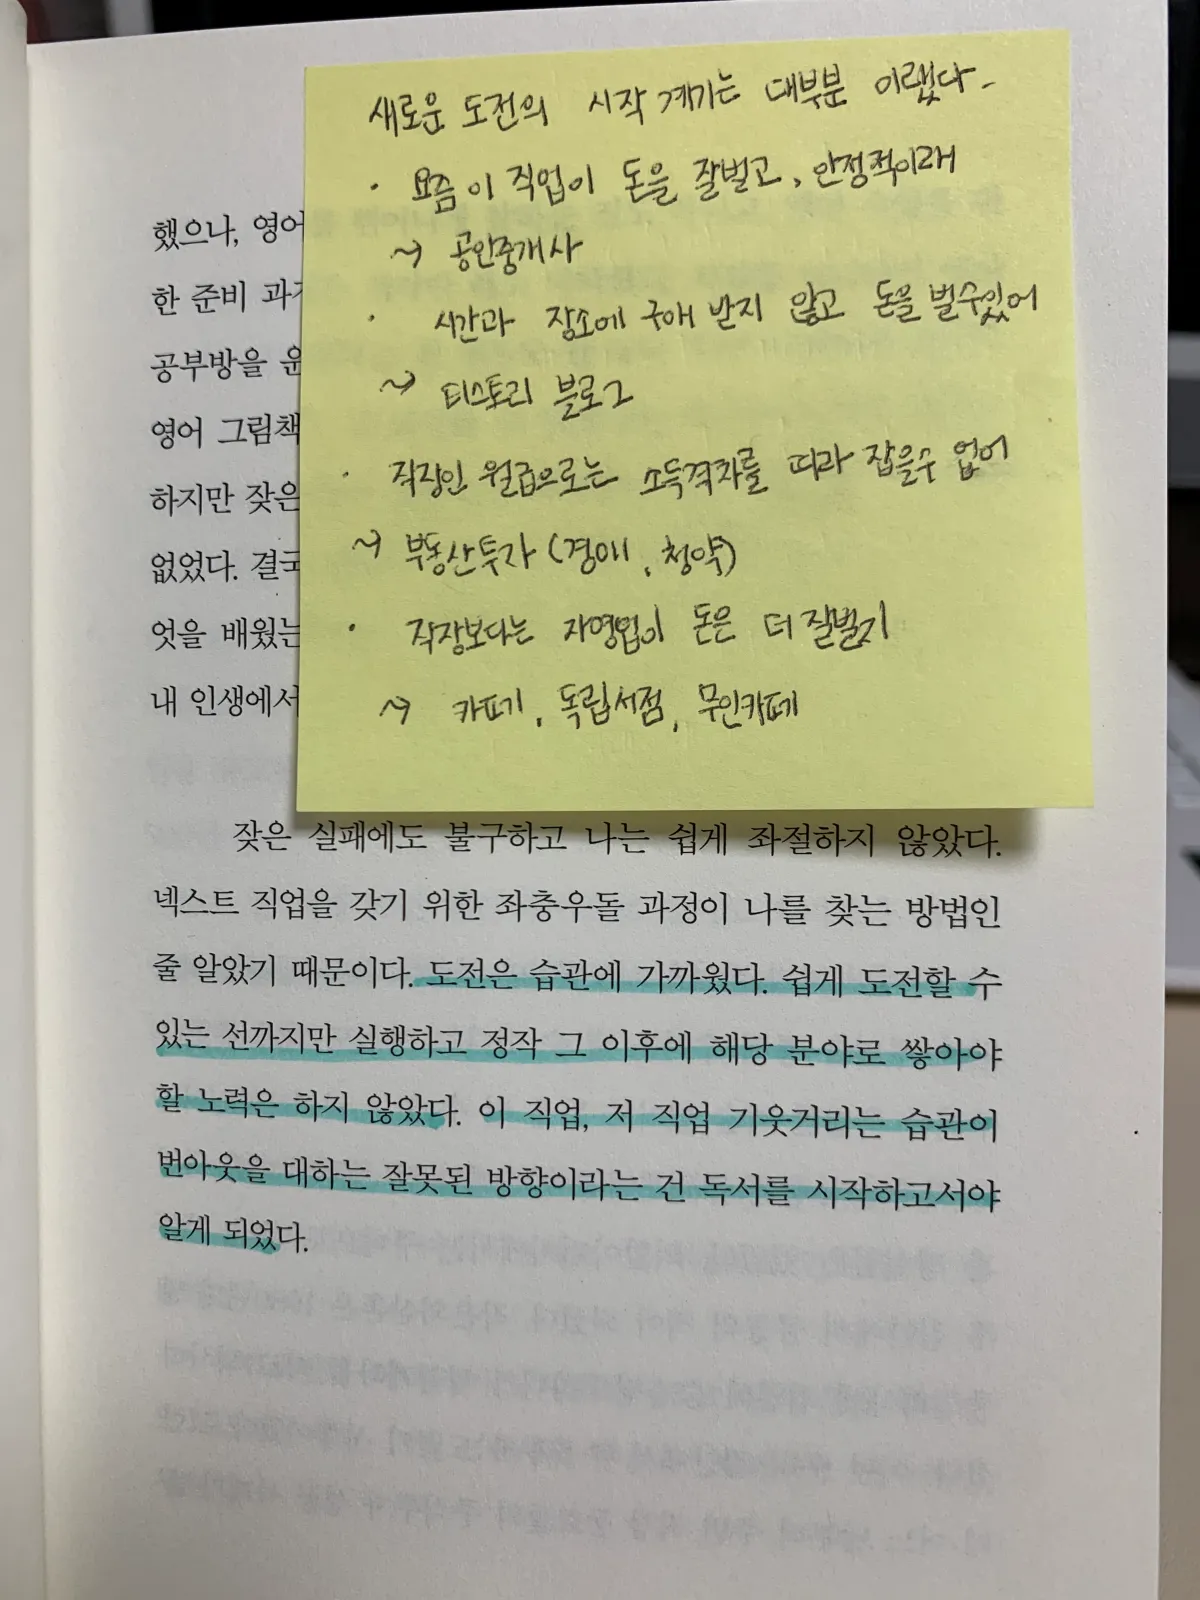 새로운 도전의 시작 계기는 대부분 이랬다.
· 요즘 이 직업이 돈을 잘벌고, 안정적이래
~> 공인중개사
· 시간과 장소에 구애 받지 않고 돈을 벌수있어
~> 티스토리 블로그
· 직장인 월급으로는 소득격차를 따라 잡을수 없어
~> 부동산투자 (경매, 청약)
· 직장보다는 자영업이 돈은 더 잘벌지
~> 카페, 독립서점, 무인카페
했으나, 영어
한 준비 과
공부방을 운
영어 그림책
하지만 잦은
없었다. 결국
엇을 배웠는
내 인생에서
잦은 실패에도 불구하고 나는 쉽게 좌절하지 않았다.
넥스트 직업을 갖기 위한 좌충우돌 과정이 나를 찾는 방법인
줄 알았기 때문이다. 도전은 습관에 가까웠다. 쉽게 도전할 수
있는 선까지만 실행하고 정작 그 이후에 해당 분야로 쌓아야
할 노력은 하지 않았다. 이 직업, 저 직업 기웃거리는 습관이
번아웃을 대하는 잘못된 방향이라는 건 독서를 시작하고서야
알게 되었다.